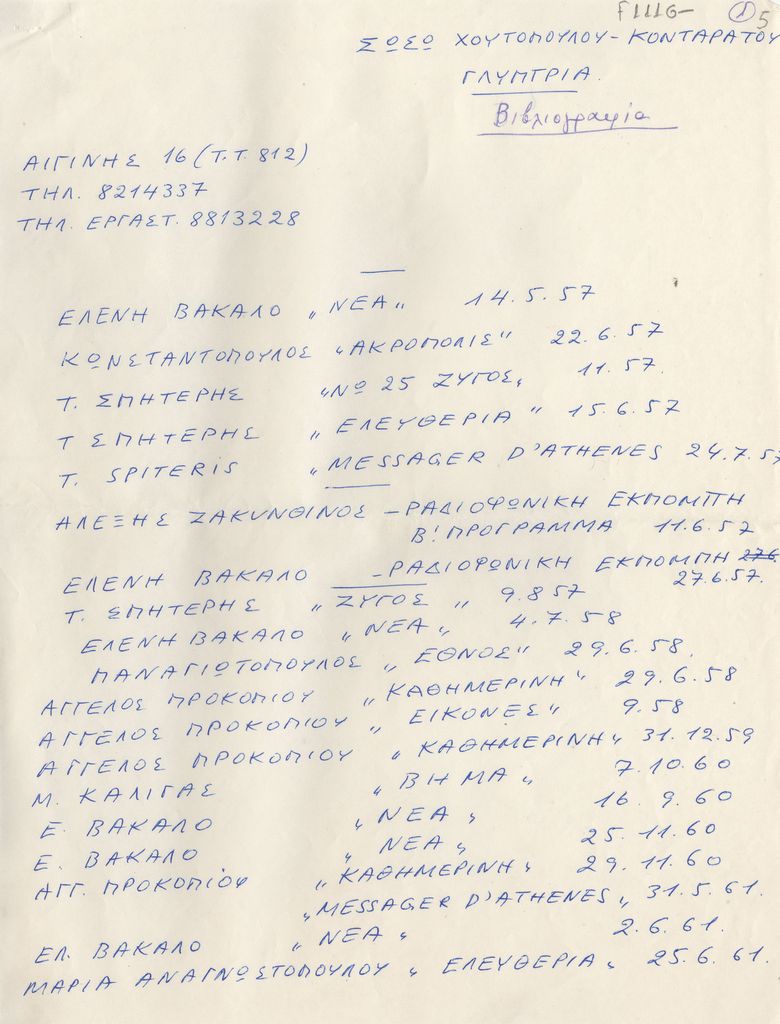 F111G- 1 5
ΣΩΣΩ ΧΟΥΤΟΠΟΥΛΟΥ-ΚΟΝΤΑΡΑΤΟΥ
ΓΛΥΠΤΡΙΑ.
Βιβλιογραφία
ΑΙΓΙΝΗΣ 16 (Τ.Τ. 812)
ΤΗΛ. 8214337
ΤΗΛ. ΕΡΓΑΣΤ. 8813228
ΕΛΕΝΗ ΒΑΚΑΛΟ „ΝΕΑ„ 14.5.57
ΚΩΝΣΤΑΝΤΟΠΟΥΛΟΣ „ΑΚΡΟΠΟΛΙΣ" 22.6.57
Τ. ΣΠΗΤΕΡΗΣ „Νο 25 ΖΥΓΟΣ„ 11.57.
Τ ΣΠΗΤΕΡΗΣ „ΕΛΕΥΘΕΡΙΑ" 15.6.57
Τ. SPITERIS „MESSAGER D'ATHENES 24.7.57
ΑΛΕΞΗΣ ΖΑΚΥΝΘΙΝΟΣ - ΡΑΔΙΟΦΩΝΙΚΗ ΕΚΠΟΜΠΗ
Β! ΠΡΟΓΡΑΜΜΑ 11.6.57
ΕΛΕΝΗ ΒΑΚΑΛΟ - ΡΑΔΙΟΦΩΝΙΚΗ ΕΚΠΟΜΠΗ 27.6.
27.6.57.
Τ. ΣΠΗΤΕΡΗΣ „ΖΥΓΟΣ„ 9.8 57
ΕΛΕΝΗ ΒΑΚΑΛΟ „ΝΕΑ„ 4.7.58
ΠΑΝΑΓΙΩΤΟΠΟΥΛΟΣ „ΕΘΝΟΣ" 29.6.58.
ΑΓΓΕΛΟΣ ΠΡΟΚΟΠΙΟΥ „ΚΑΘΗΜΕΡΙΝΗ" 29.6.58
ΑΓΓΕΛΟΣ ΠΡΟΚΟΠΙΟΥ „ΕΙΚΟΝΕΣ„ 9.58
ΑΓΓΕΛΟΣ ΠΡΟΚΟΠΙΟΥ „ΚΑΘΗΜΕΡΙΝΗ„ 31.12.59
Μ. ΚΑΛΙΓΑΣ „ΒΗΜΑ„ 7.10.60
Ε. ΒΑΚΑΛΟ „ΝΕΑ„ 16.9.60
Ε. ΒΑΚΑΛΟ „ΝΕΑ„ 25.11.60
ΑΓΓ. ΠΡΟΚΟΠΙΟΥ „ΚΑΘΗΜΕΡΙΝΗ„ 29.11.60
„MESSAGER D'ATHENES„ 31.5.61.
ΕΛ. ΒΑΚΑΛΟ „ΝΕΑ„ 2.6.61.
ΜΑΡΙΑ ΑΝΑΓΝΩΣΤΟΠΟΥΛΟΥ „ΕΛΕΥΘΕΡΙΑ„ 25.6.61.